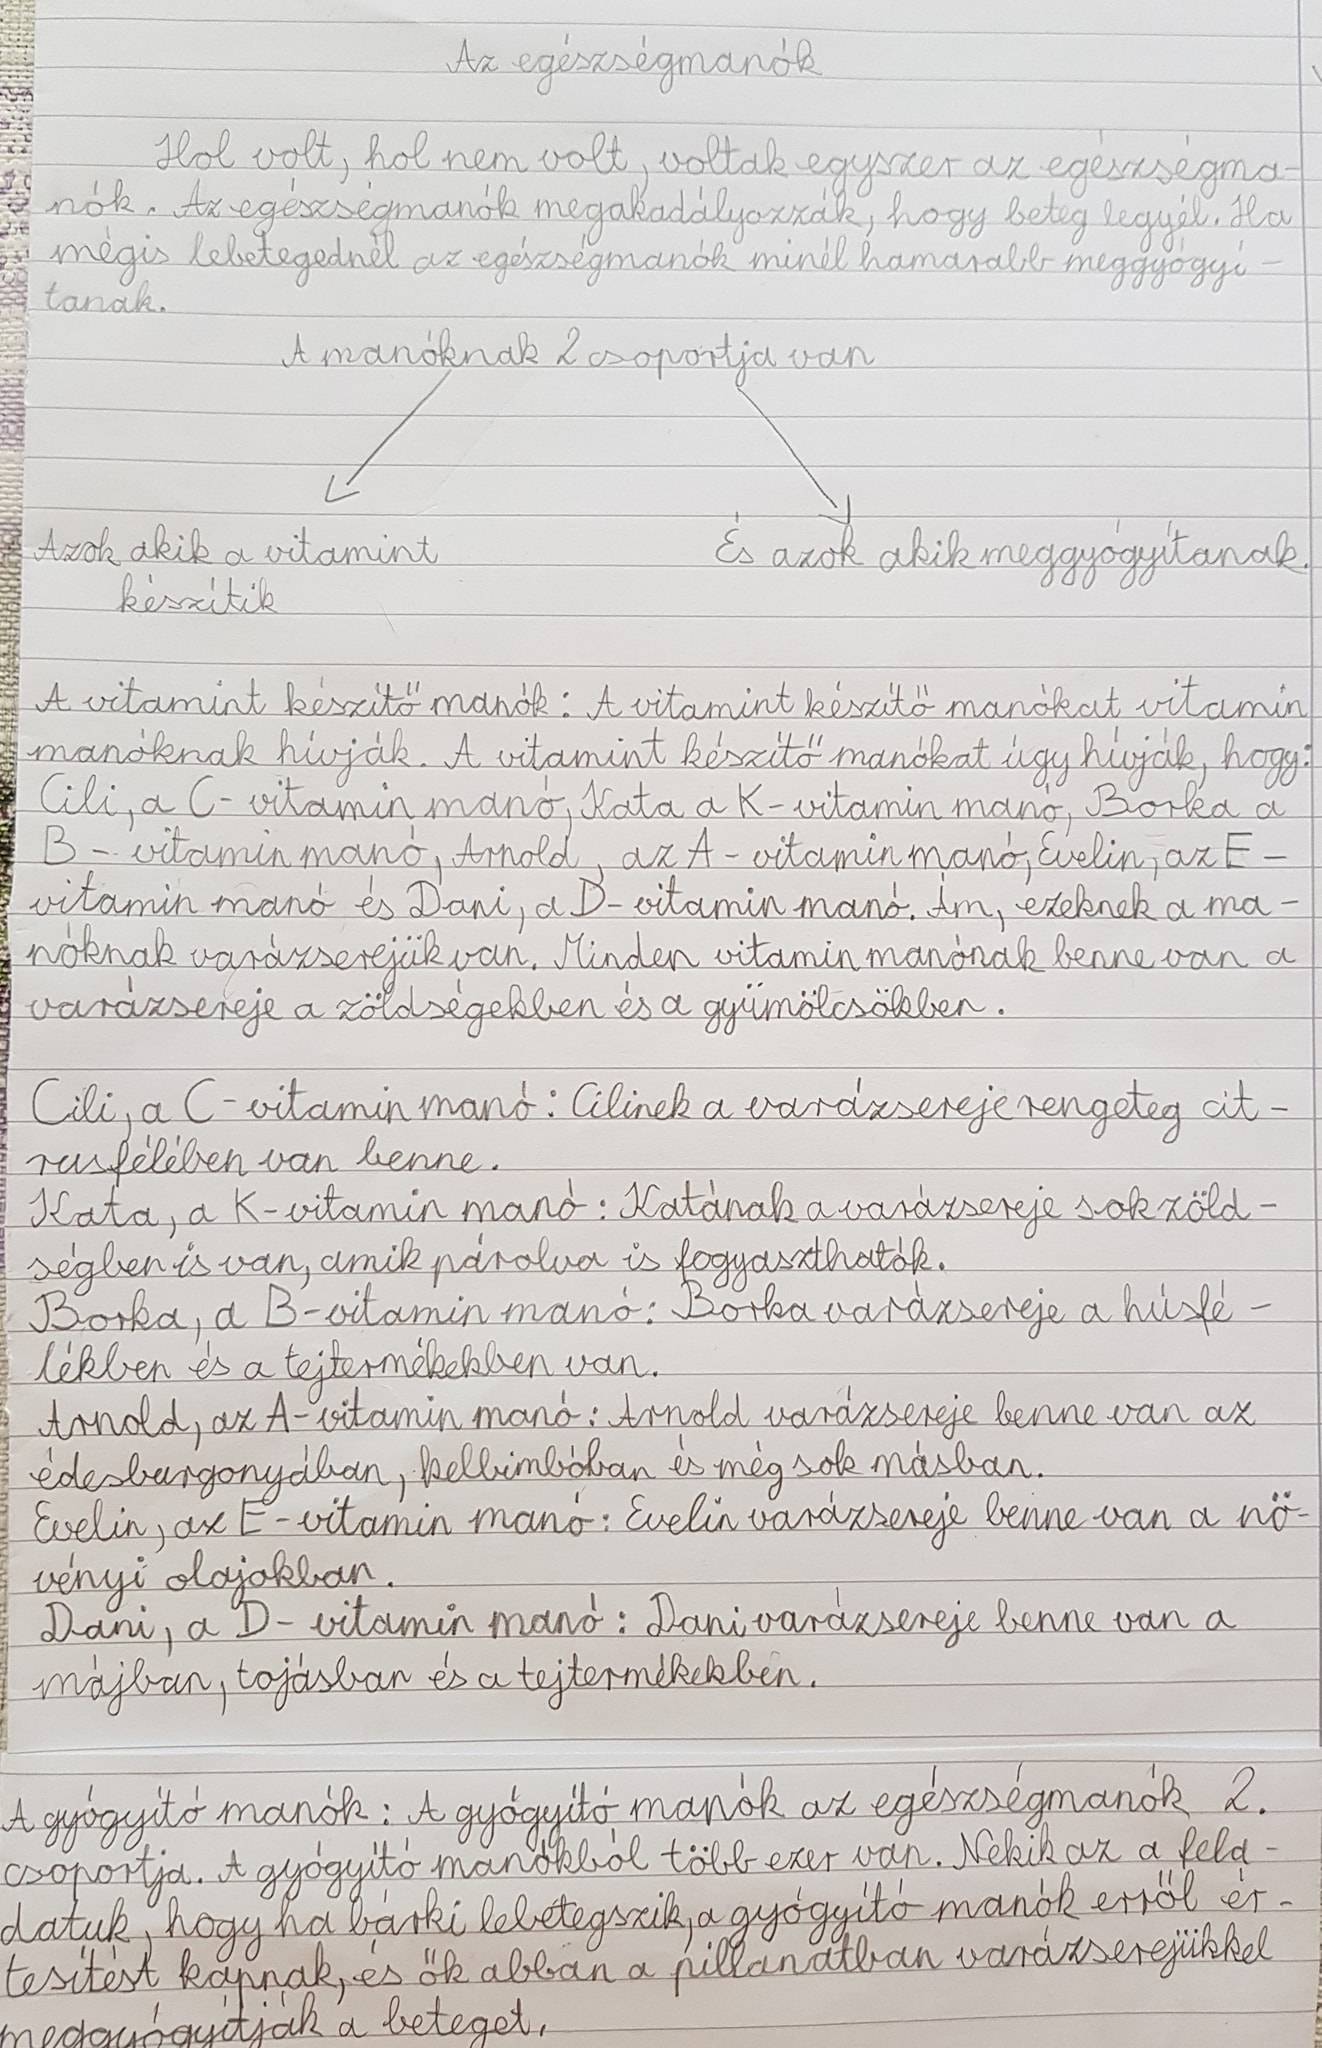 Az egészségmanók
Hol volt, hol nem volt, voltak egyszer az egészségma-
nók. Az egészségmanók megakadályozzák, hogy beteg legyél. Ha
mégis lebetegednél az egészségmanók minél hamarabb meggyógyí-
tanak.
A manóknak 2 csoportja van
Azok akik a vitamint
készítik
És azok akik meggyógyítanak.
A vitamint készítő manók: A vitamint készítő manókat vitamin
manóknak hívják. A vitamint készítő manókat úgy hívják, hogy:
Cili, a C-vitamin manó, Kata a K-vitamin manó, Borka a
B-vitamin manó, Arnold, az A-vitamin manó, Evelin, az E-
vitamin manó és Dani, a D-vitamin manó. Ám, ezeknek a ma-
nóknak varázserejük van. Minden vitamin manónak benne van a
varázsereje a zöldségekben és a gyümölcsökben.
Cili, a C-vitamin manó: Cilinek a varázsereje rengeteg cit-
rusfélében van benne.
Kata, a K-vitamin manó: Katának a varázsereje sok zöld-
ségben is van, amik párolva is fogyaszthatók.
Borka, a B-vitamin manó: Borka varázsereje a húsfé-
lékben és a tejtermékekben van.
Arnold, az A-vitamin manó: Arnold varázsereje benne van az
édesburgonyában, kelbimbóban és még sok másban.
Evelin, az E-vitamin manó: Evelin varázsereje benne van a nö-
vényi olajokban.
Dani, a D-vitamin manó: Dani varázsereje benne van a
májban, tojásban és a tejtermékekben.
A gyógyító manók: A gyógyító manók az egészségmanók 2.
csoportja. A gyógyító manókból több ezer van. Nekik az a fela-
datuk, hogy ha bárki lebetegszik, a gyógyító manók erről ér-
tesítést kapnak, és ők abban a pillanatban varázserejükkel
meggyógyítják a beteget.